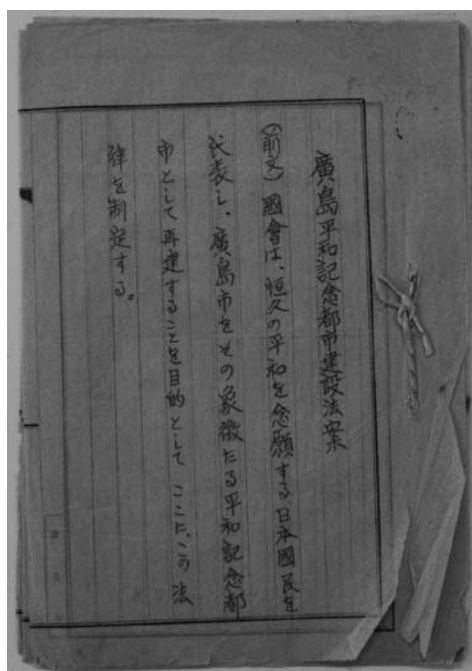 廣島平和記念都市建設法案
(前文) 國會は、恒久の平和を念願する日本國民を
代表し、廣島市をその象徴たる平和記念都
市として再建することを目的として ここに、この法
律を制定する。